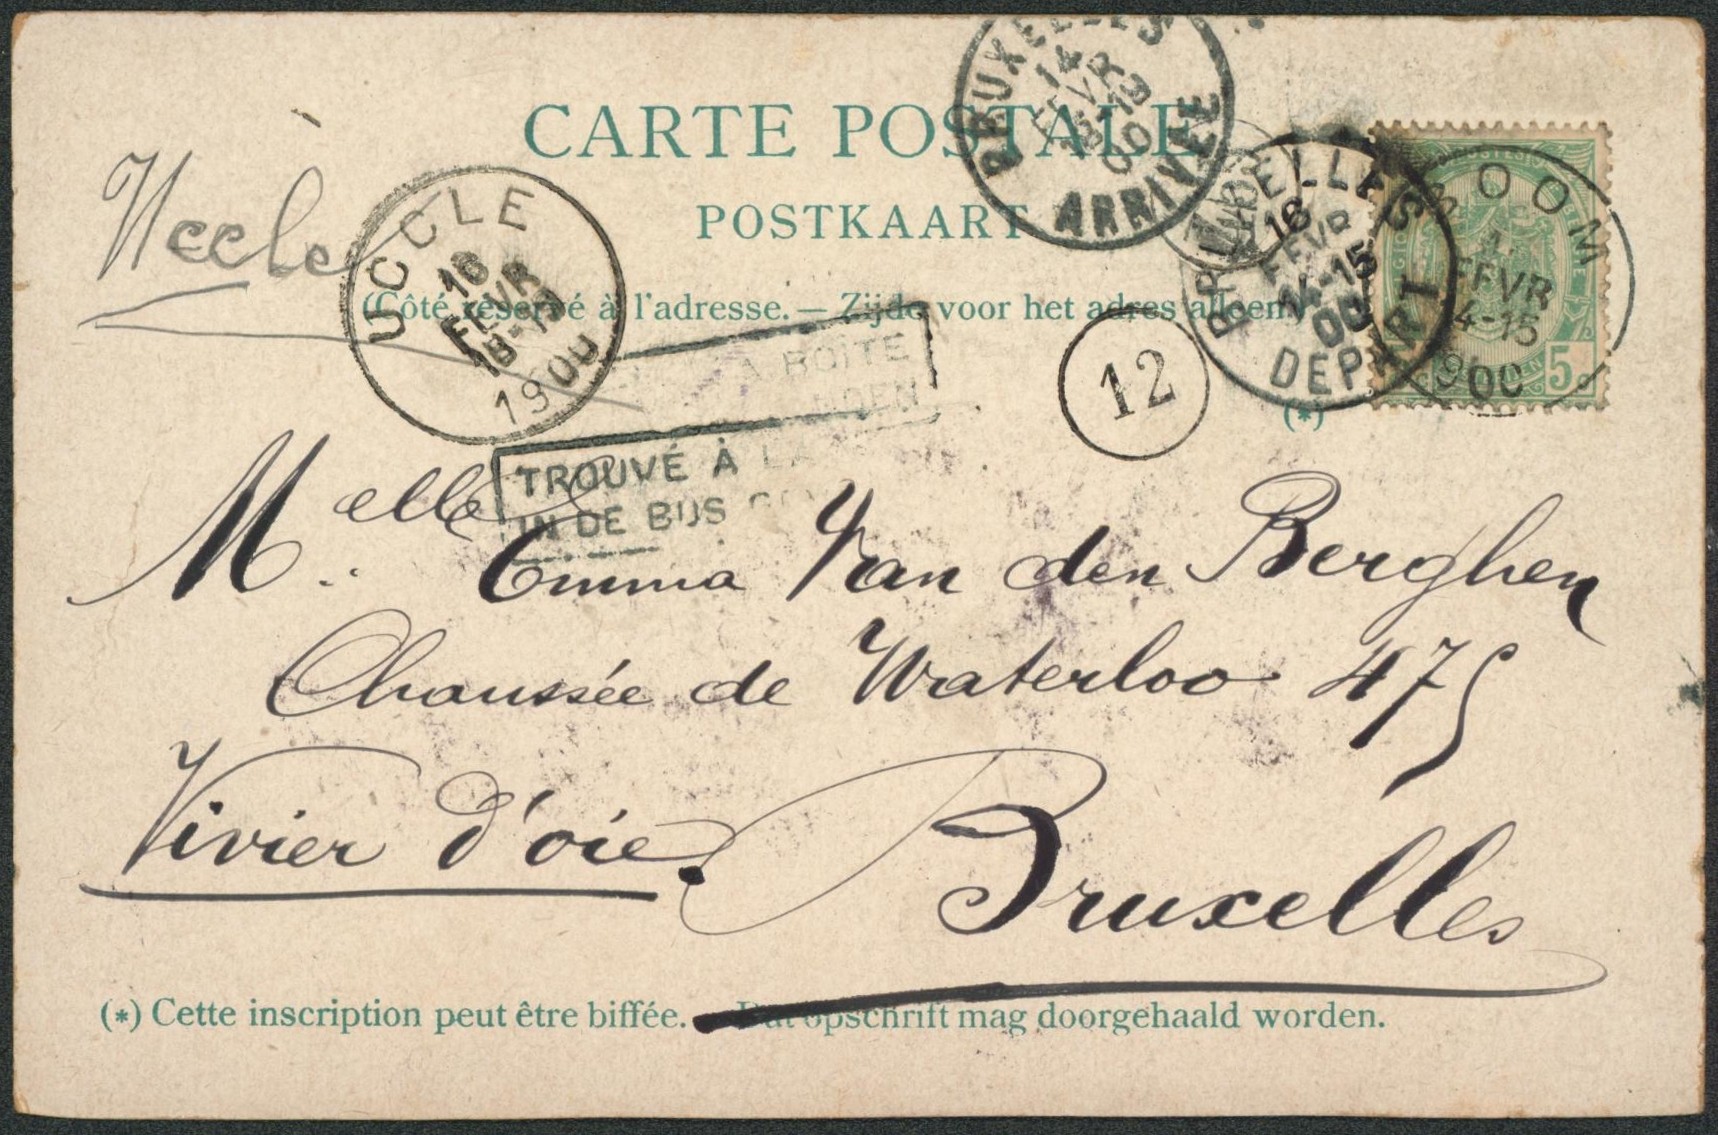 CARTE POSTALE
POSTKAART
(Côté réservé à l'adresse. — Zijde voor het adres alleen)
(*)
Uccle
UCCLE
16
FEVR
18-19
1900
BRUXELLES
14
FEVR
18-19
00
ARRIVÉE
BRUXELLES
16
FEVR
14-15
00
DEPART
BOOM
FEVR
14-15
1900
5
12
À BOÎTE
TROUVÉ À LA
IN DE BUS
Melle Emma Van den Berghen
Chaussée de Waterloo 475
Vivier d'oie.
Bruxelles
(*) Cette inscription peut être biffée. — Dat opschrift mag doorgehaald worden.